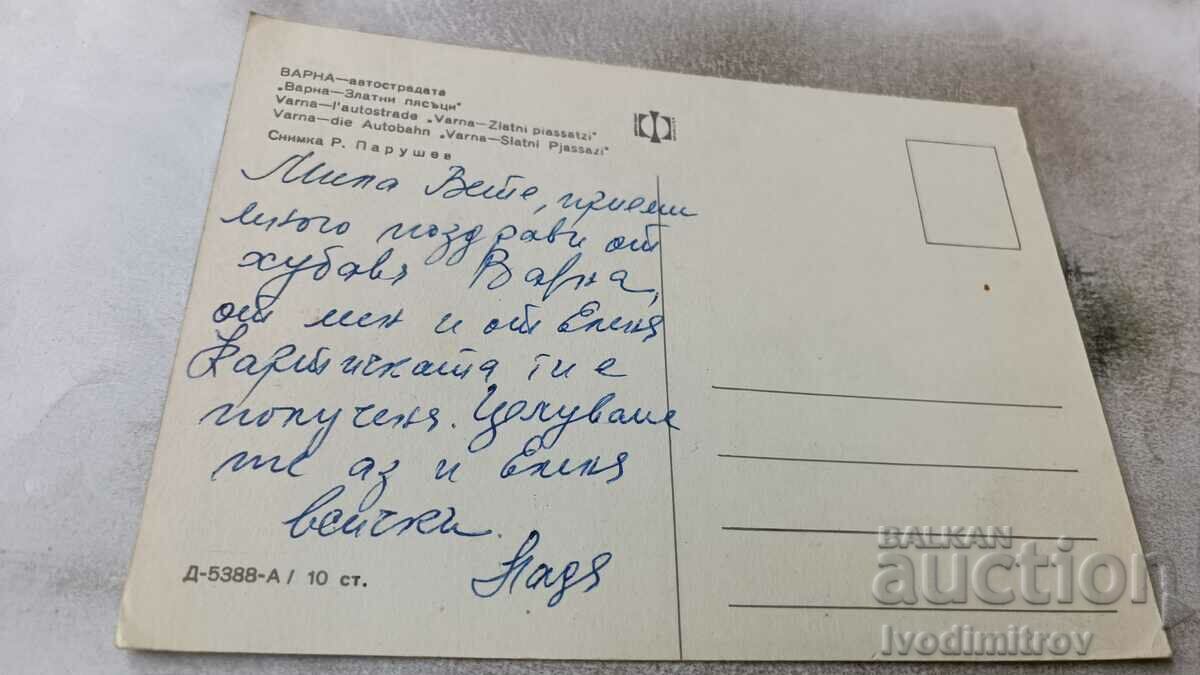 ВАРНА—автострадата
„Варна—Златни пясъци"
Varna—l'autostrade „Varna—Zlatni piassatzi"
Varna—die Autobahn „Varna—Slatni Pjassazi"
Снимка Р. Парушев
Мила Вете, приеми
много поздрави от
хубавя Варна,
от мен и от Еленя
Картичката ти е
получена. Целуваме
те аз и Еленя
всички.
Надя
Д-5388-А / 10 ст.
BALKAN
auction
Ivodimitrov